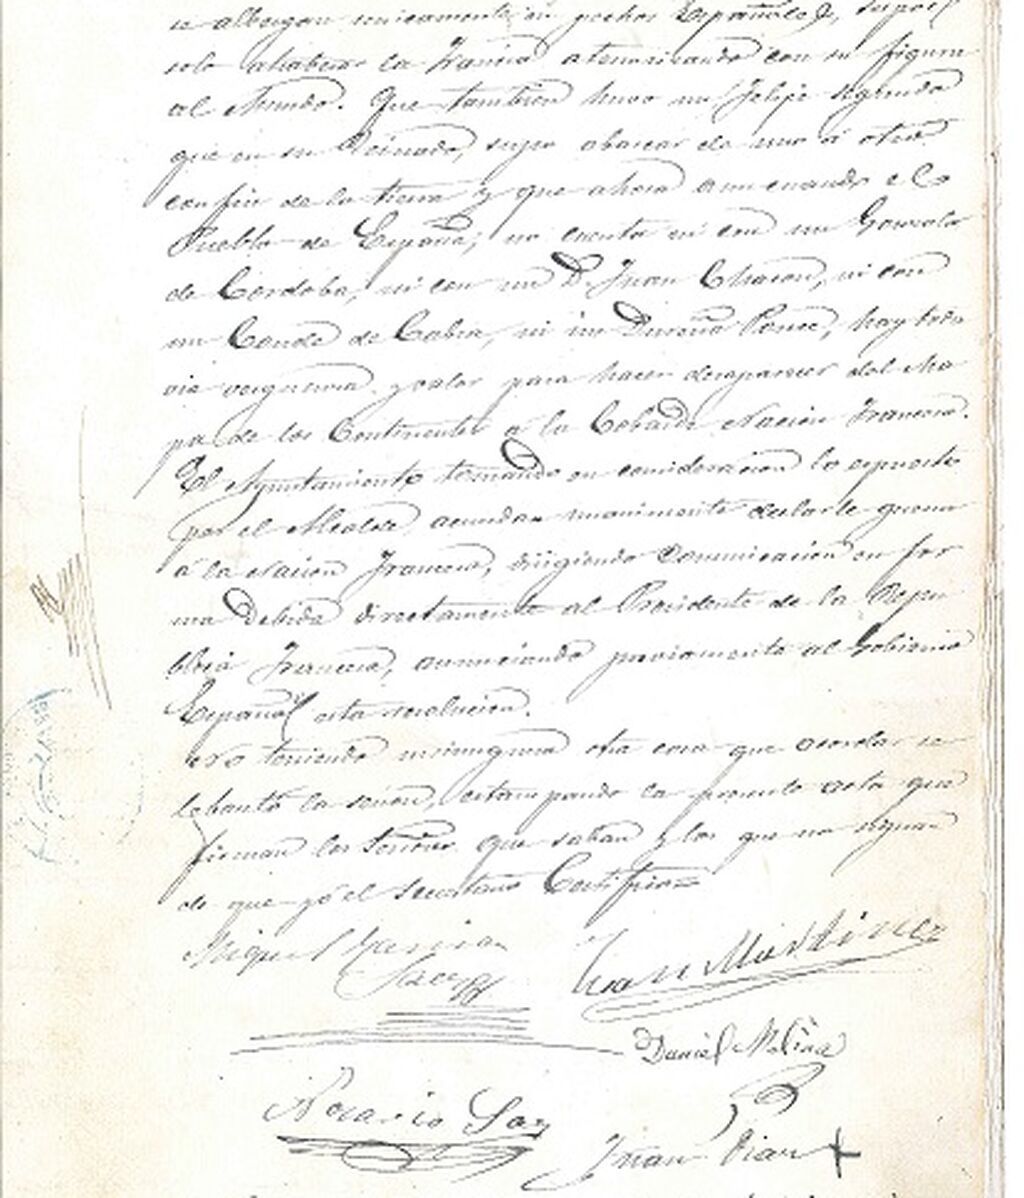 se albergan unicamente en pechos Españoles, supo el
solo atrabesar la Francia atemorizando con su figura
al Mundo. Que tambien huvo un Felipe segundo
que en su Reinado, supo abarcar de uno á otro
confin de la tierra y que ahora aun cuando el
Pueblo de España, no cuenta ni con un Gonzalo
de Cordoba, ni con un D. Juan Chacon, ni con
un Conde de Cabra, ni un Ponce, hay toda
via verguenza y valor para hacer desaparecer del Ma
pa de los Continentes á la Cobarde Nacion Francesa.
El Ayuntamiento tomando en consideracion lo expuesto
por el Alcalde, acuerdan unanimente declarle guerra
á la Nacion Francesa, dirigiendo Comunicacion en for
ma debida directamente al Presidente de la Repu
blica Francesa, anunciando previamente al Gobierno
Español esta resolucion.
Y no teniendo ninguna otra cosa que acordar se
lebantó la sesion, estampando la presente acta que
firman los Señores que saben y los que no signan
de que yo el Secretario Certifico=
Miguel Garcia
Saez
Juan Martinez
Daniel Molina
Rosario Saez
Juan Diaz +